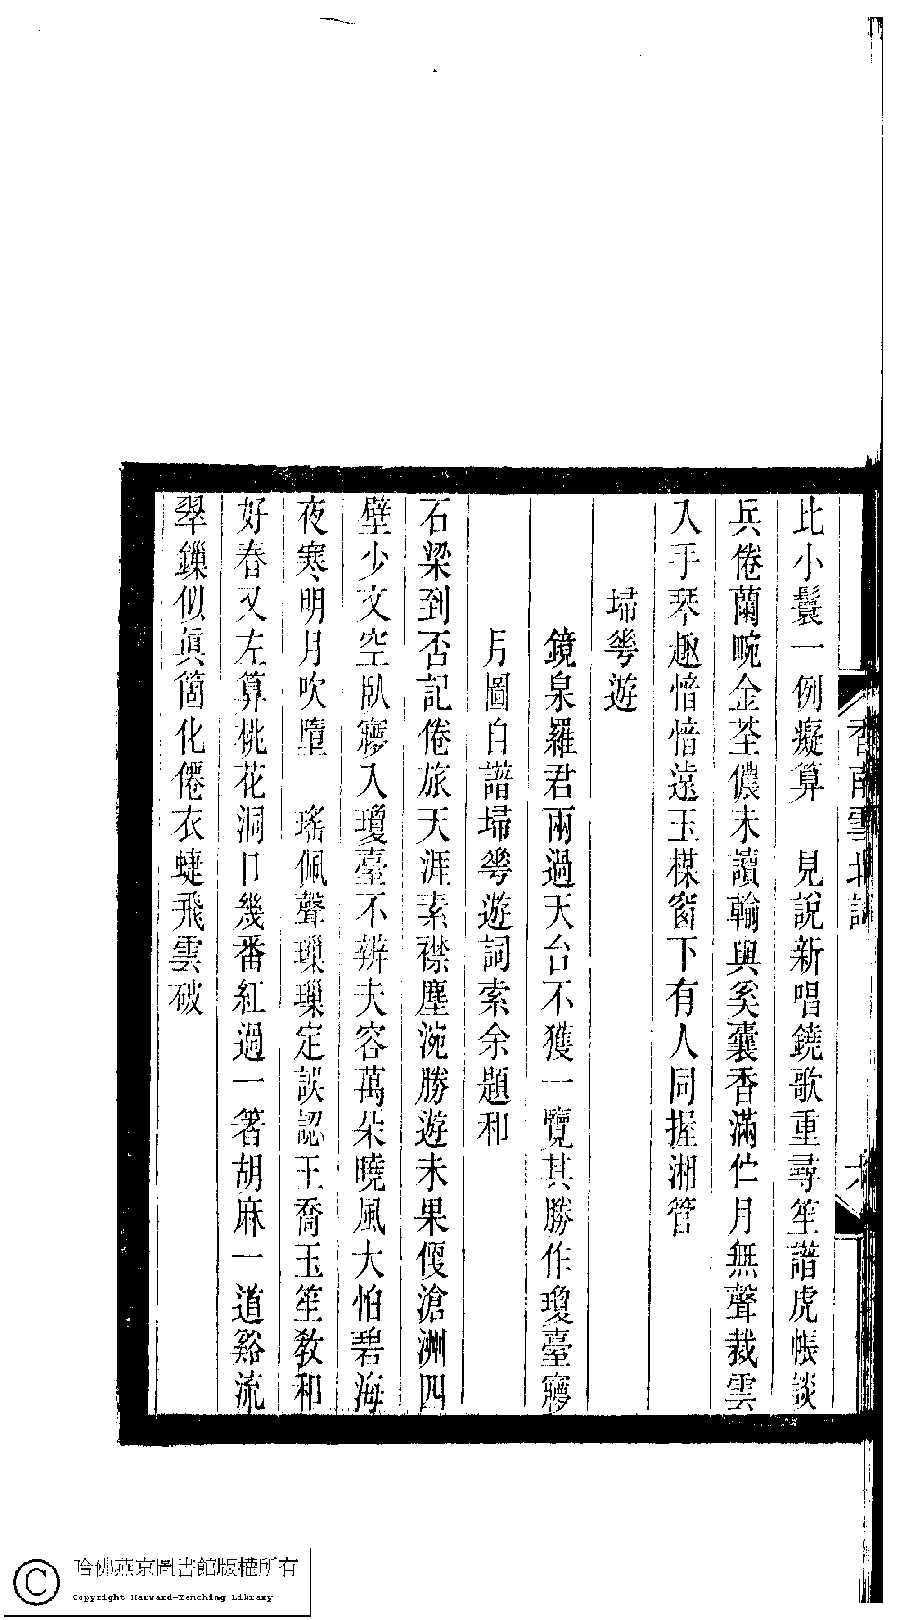 香南雪北詞
六
比小鬟一例癡算　見說新唱鐃歌重尋笙譜虎帳談
兵倦蘭畹金荃儂未讀輸與奚囊香滿伫月無聲裁雲
入手琴趣愔愔遠玉楳窗下有人同握湘管
埽華遊
鏡泉羅君兩過天台不獲一覽其勝作瓊臺㝱
月圖自譜埽華遊詞索余題和
石梁到否記倦旅天涯素襟塵涴勝遊未果僾滄洲四
壁少文空臥㝱入瓊臺不辨夫容萬朵曉風大怕碧海
夜寒明月吹墮　瑤佩聲璅璅定誤認王喬玉笙敎和
好春又左算桃花洞口幾番紅過一箸胡麻一道谿流
翠鏁似眞箇化僊衣蜨飛雲破
哈佛燕京圖書館版權所有
Copyright Harvard-Yenching Library